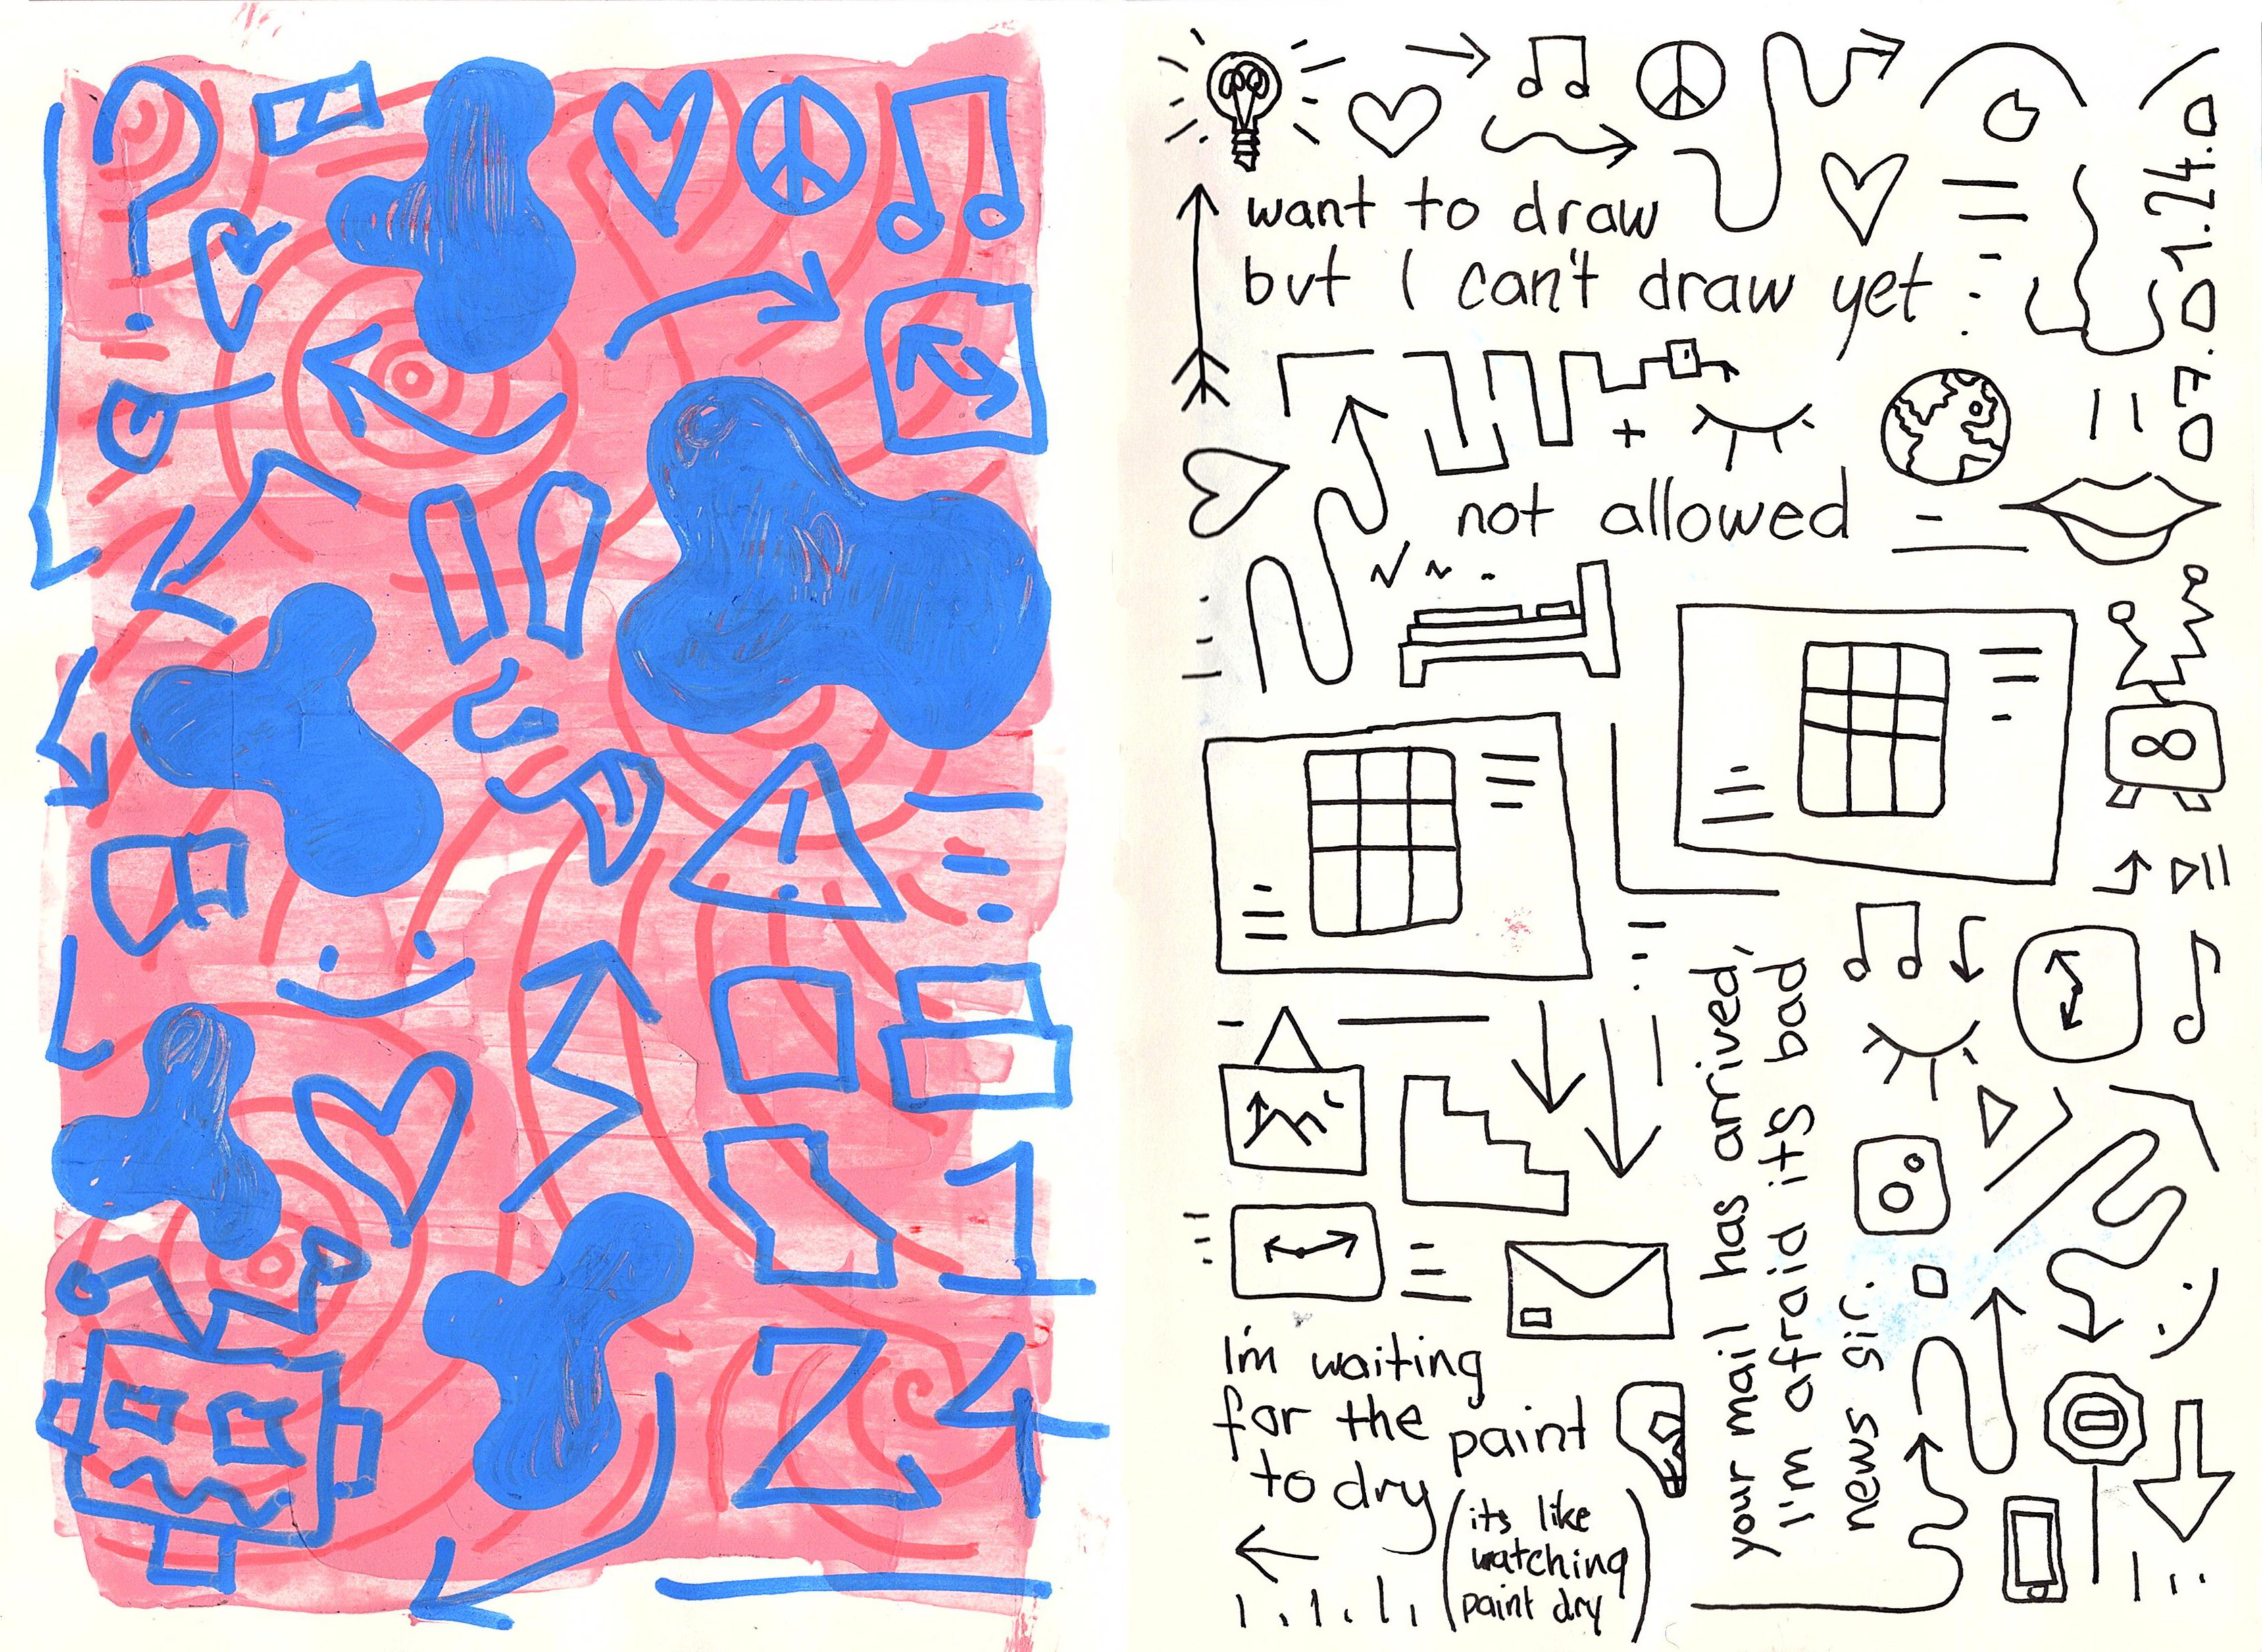 want to draw
but I can't draw yet
07.01.24.
not allowed
your mail has arrived,
I'm afraid it's bad
news sir.
I'm waiting
for the paint
to dry
(its like
watching
paint dry)
1
24